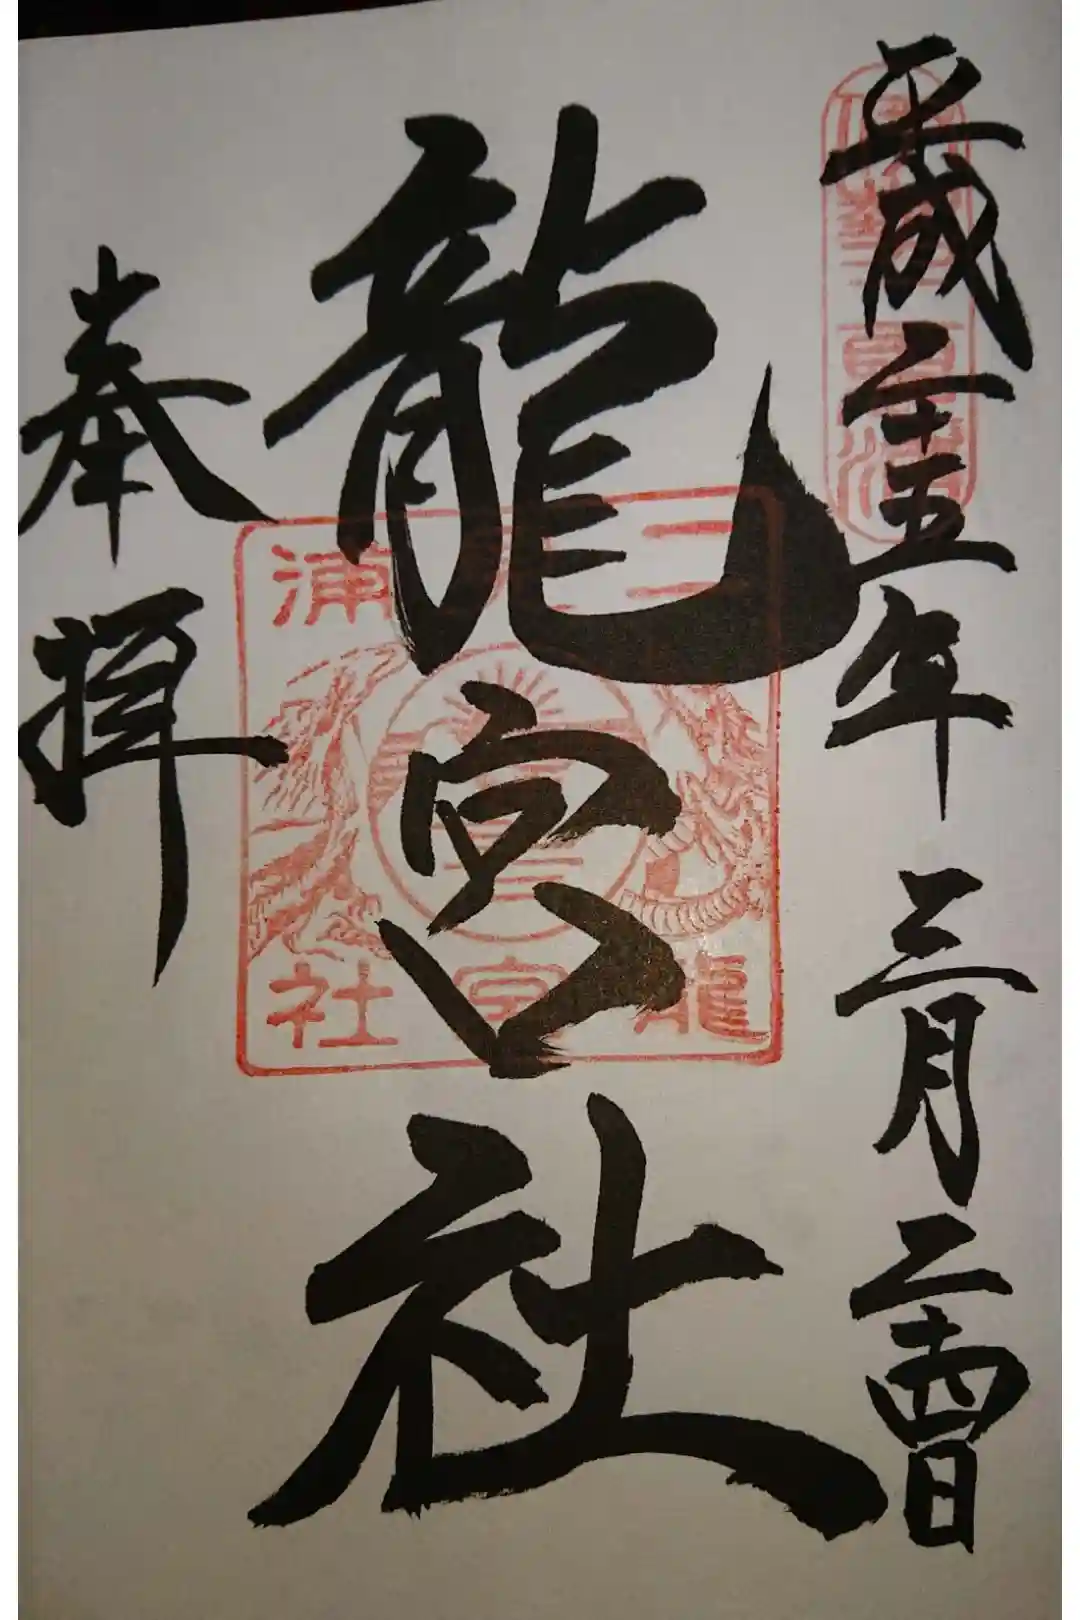 平成二十五年三月二十四日
龍宮社
奉拝
二見浦
龍宮社